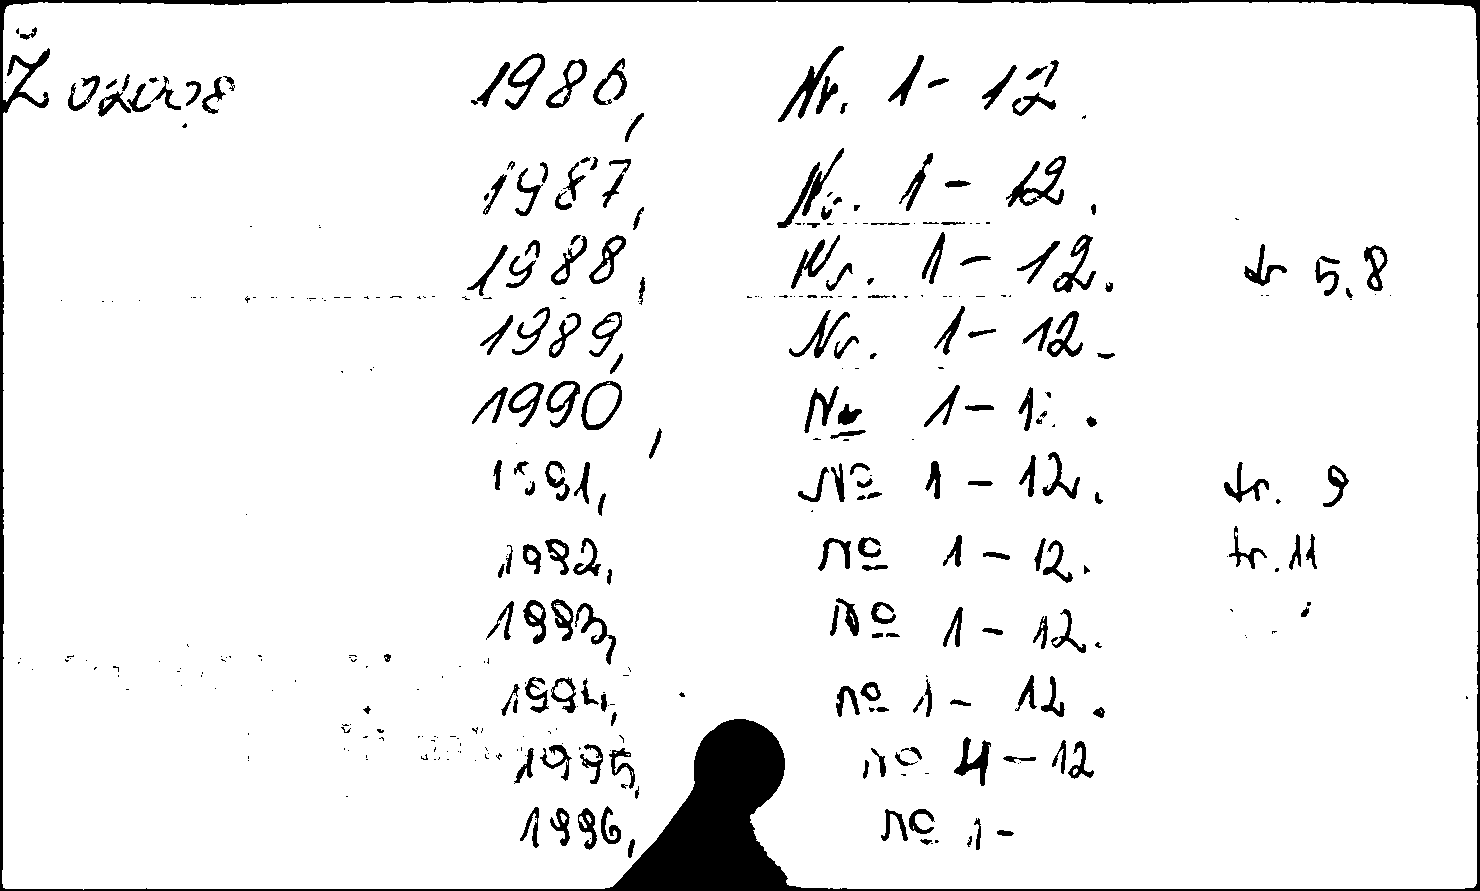 Ž 02008 1986, Nr. 1 - 12
1987, Nr. 1 - 12.
1988, Nr. 1 - 12. tr 5,8
1989, Nr. 1 - 12.
1990, Nr 1 - 12.
1991, № 1 - 12. tr. 9
1992, № 1 - 12. tr. 11
1993, № 1 - 12.
1994, № 1 - 12.
1995, № 4 - 12
1996, № 1 -